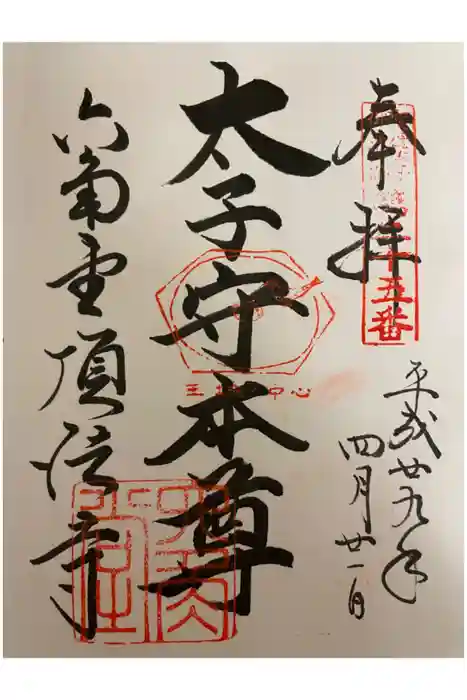 奉拝
五番
平成廿九年
四月廿一日
太子守本尊
六角堂頂法寺